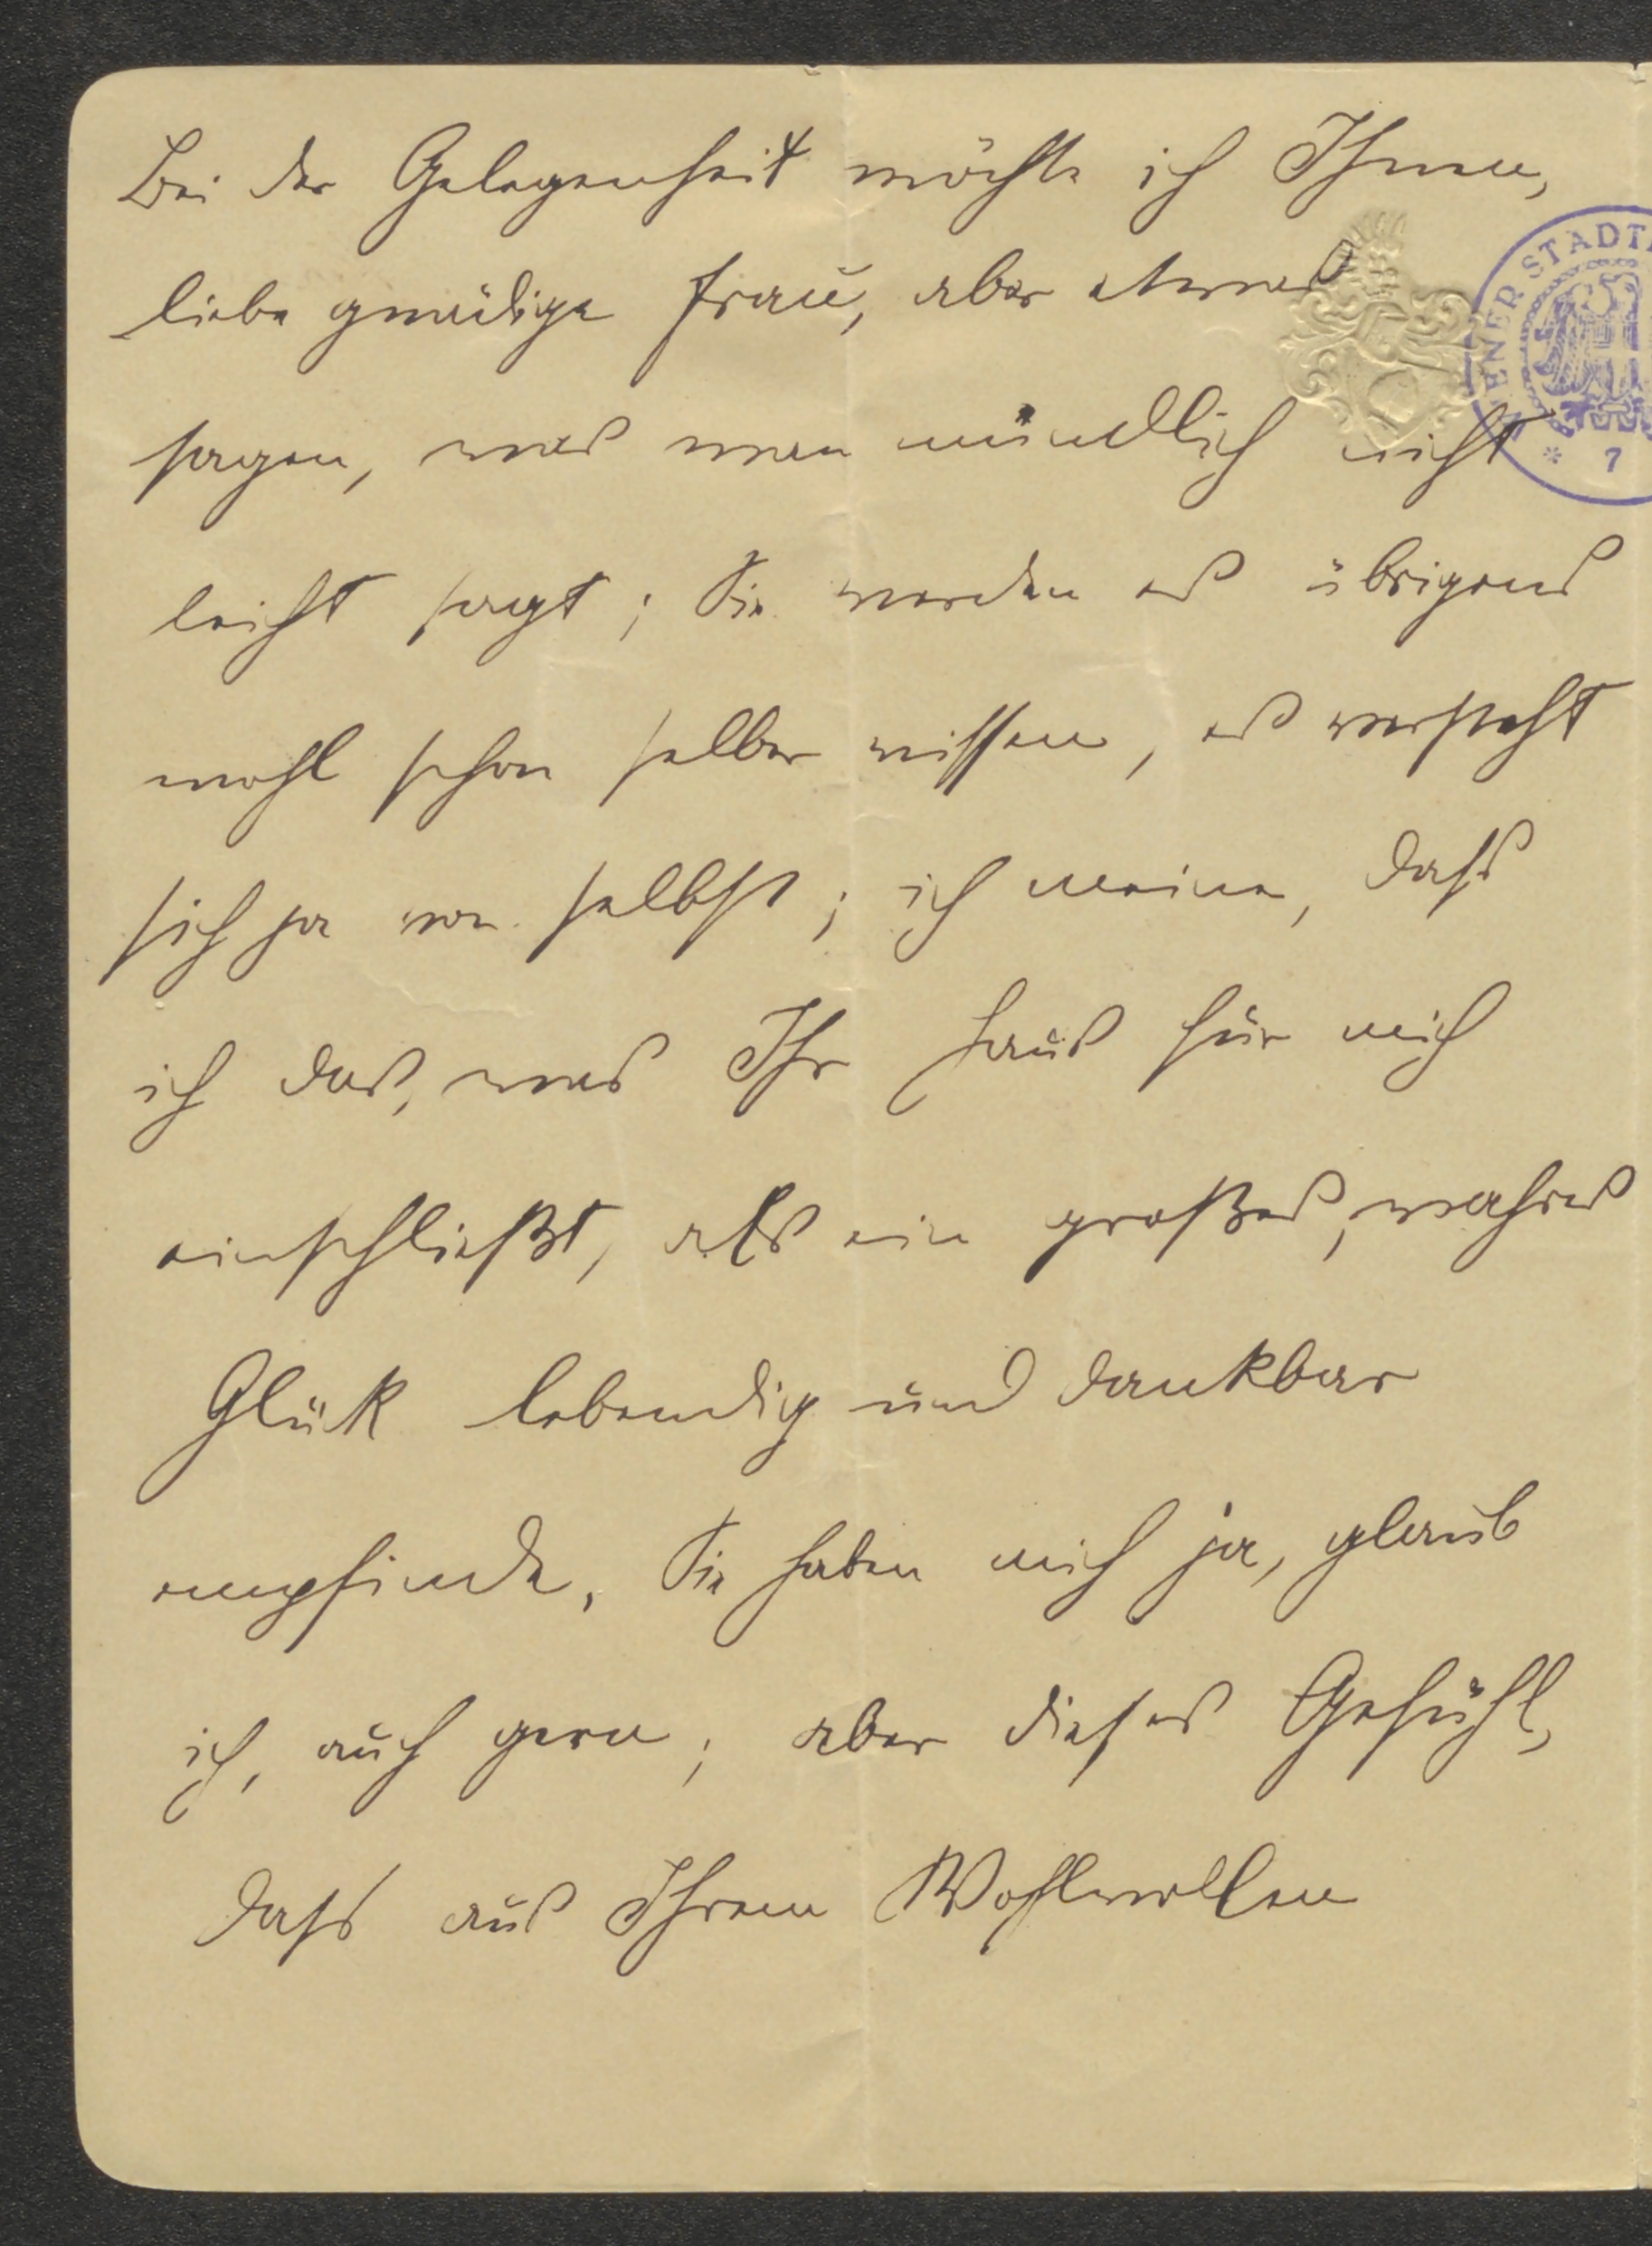 Bei der Gelegenheit möchte ich Ihnen,
liebe gnädige Frau, aber etwas
sagen, was man mündlich nicht
leicht sagt; Sie werden es übrigens
wohl schon selber wissen, es versteht
sich ja von selbst; ich meine, dass
ich das, was Ihr Haus für mich
einschließt, als ein großes, wahres
Glük lebendig und dankbar
empfinde. Sie haben mich ja, glaub
ich, auch gern; aber dieses Gefühl,
dass aus Ihrem Wohlwollen
ENER STADT
* 7